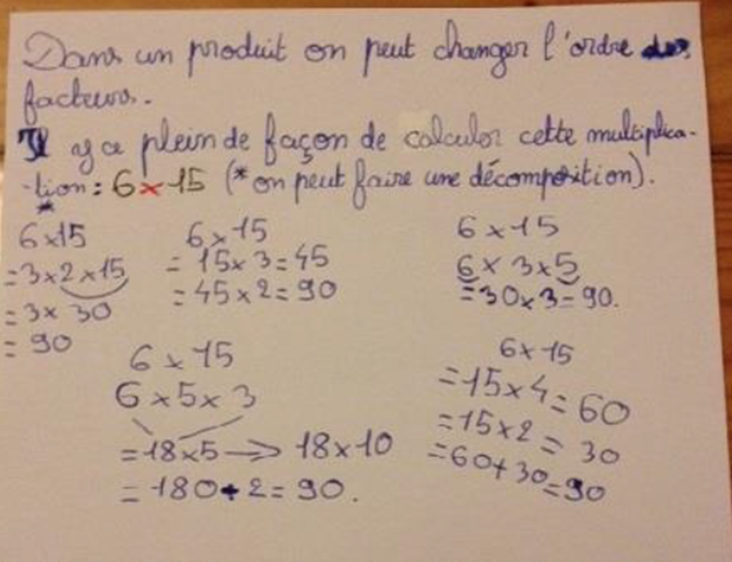 Dans un produit on peut changer l'ordre des
facteurs.
Il y a plein de façon de calculer cette multiplica-
-tion : 6 x 15 (* on peut faire une décomposition).
*
6 x 15
= 3 x 2 x 15
= 3 x 30
= 90
6 x 15
= 15 x 3 = 45
= 45 x 2 = 90
6 x 15
6 x 3 x 5
= 30 x 3 = 90.
6 x 15
6 x 5 x 3
= 18 x 5 → 18 x 10
= 180 ÷ 2 = 90.
6 x 15
= 15 x 4 = 60
= 15 x 2 = 30
= 60 + 30 = 90